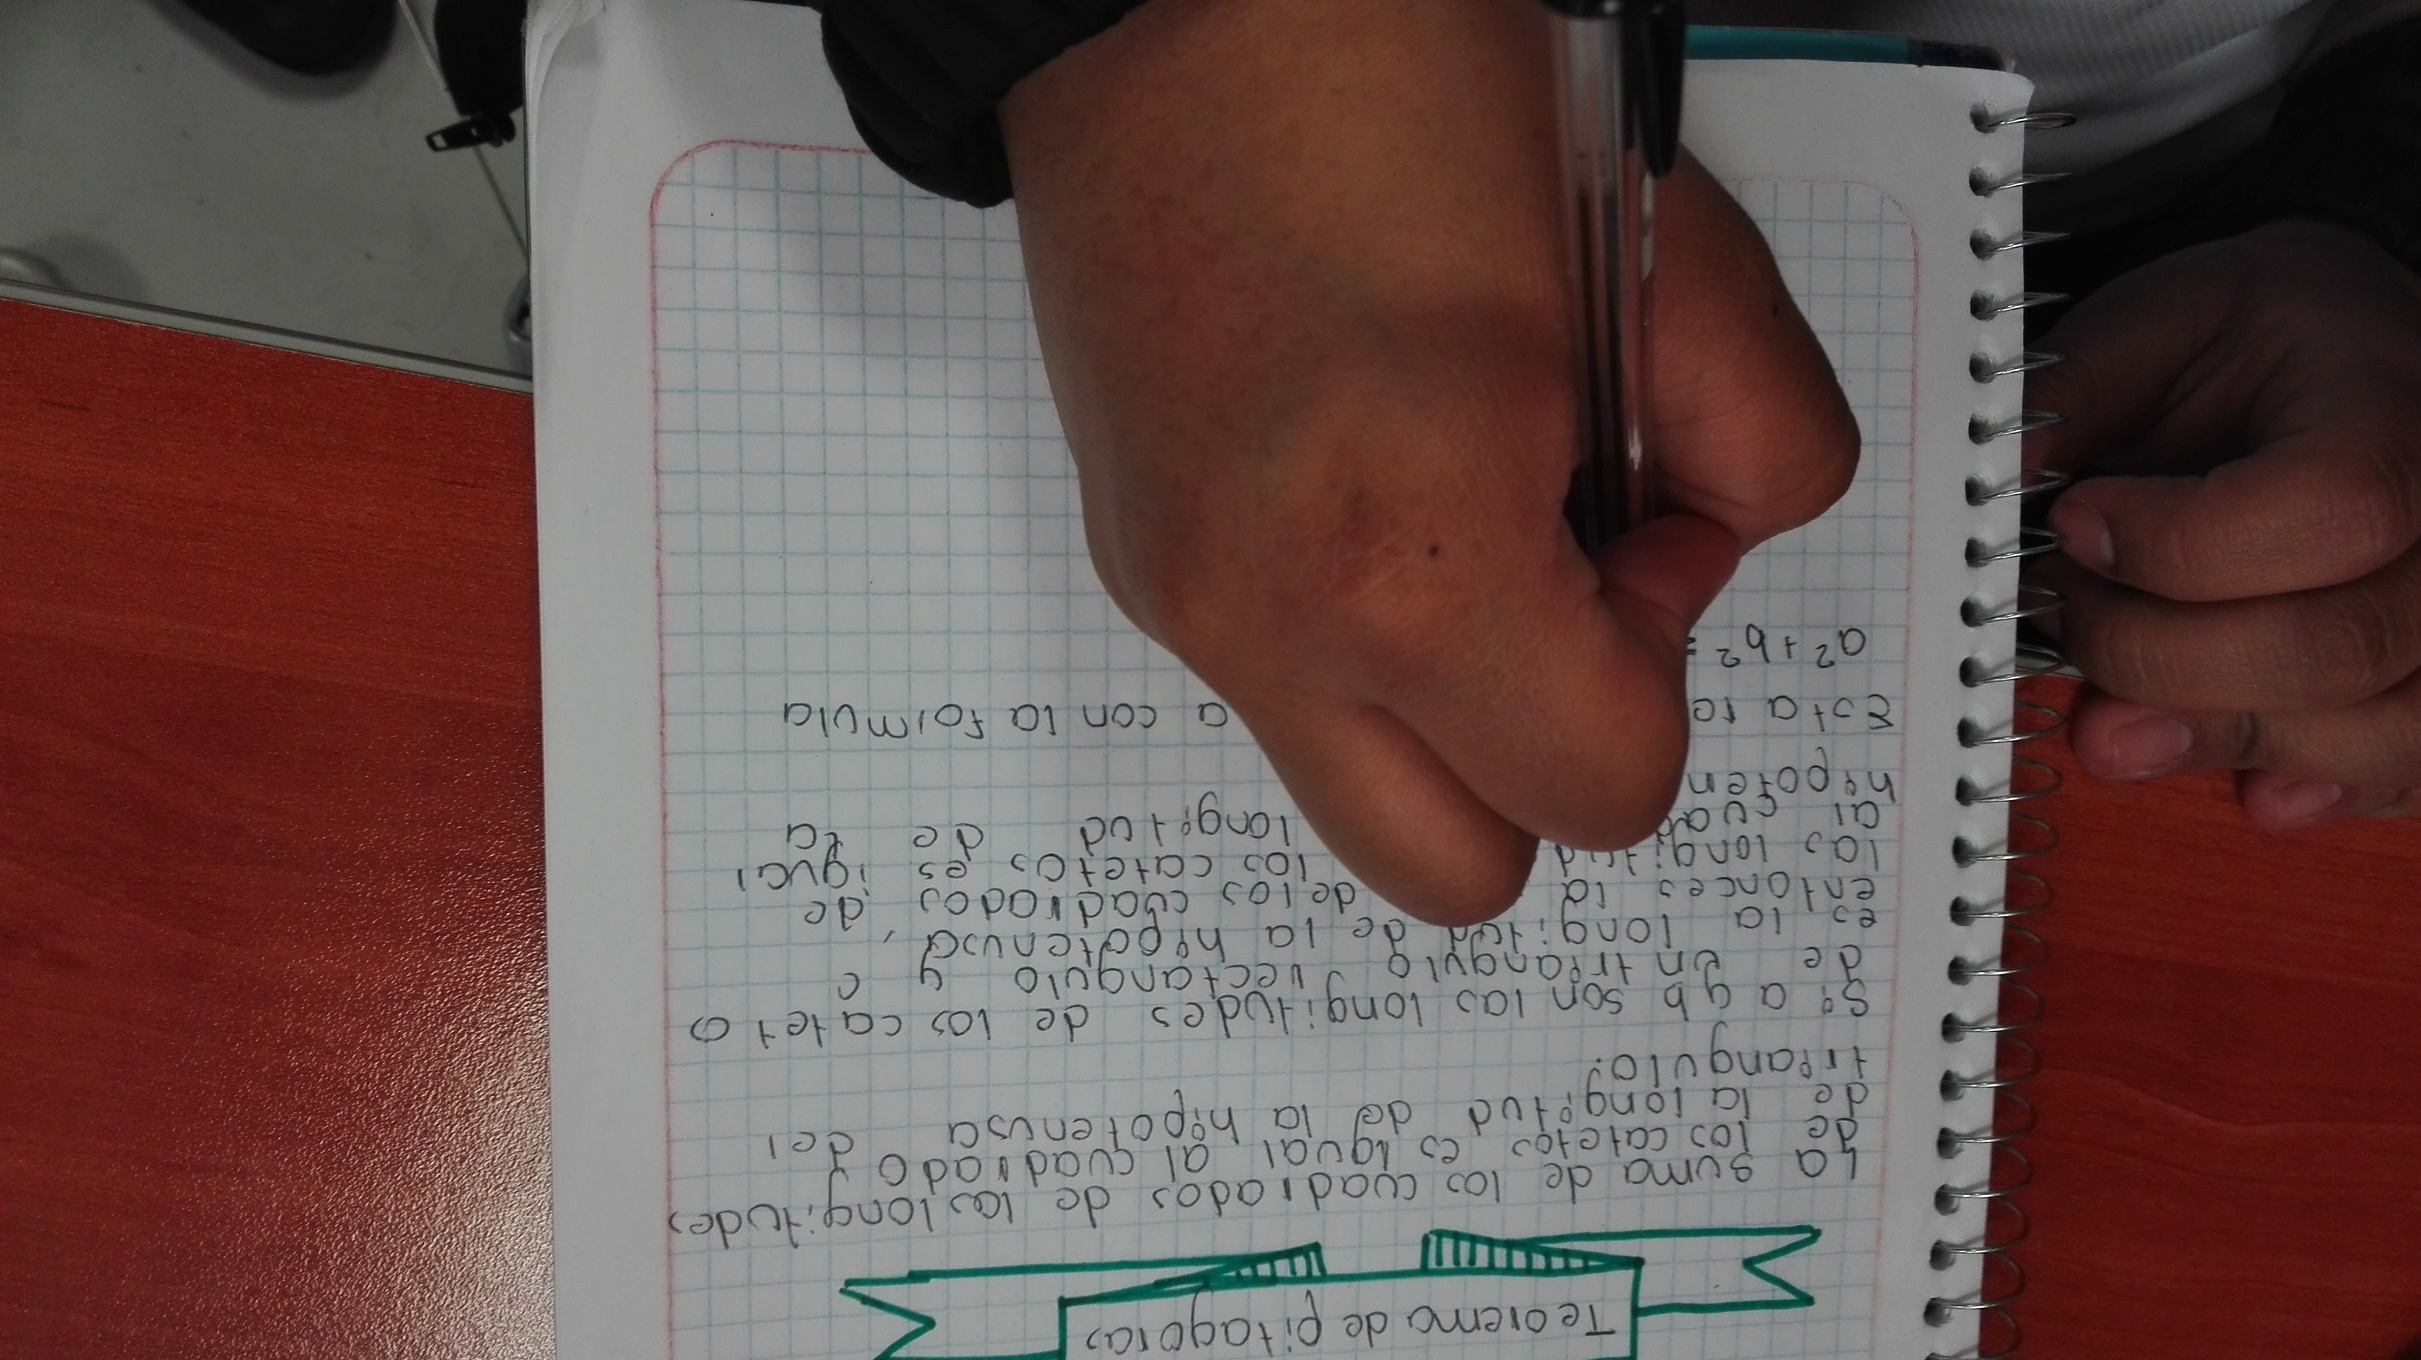 Teorema de pitagoras
La suma de los cuadrados de las longitudes
de los catetos es igual al cuadrado
de la longitud de la hipotenusa del
triangulo.
Si a y b son las longitudes de los catetos
de un triangulo rectangulo y c
es la longitud de la hipotenusa,
entonces la de los cuadrados de
las longitud los catetos es igual
al longitud de la
Esta con la formula
a² + b² =